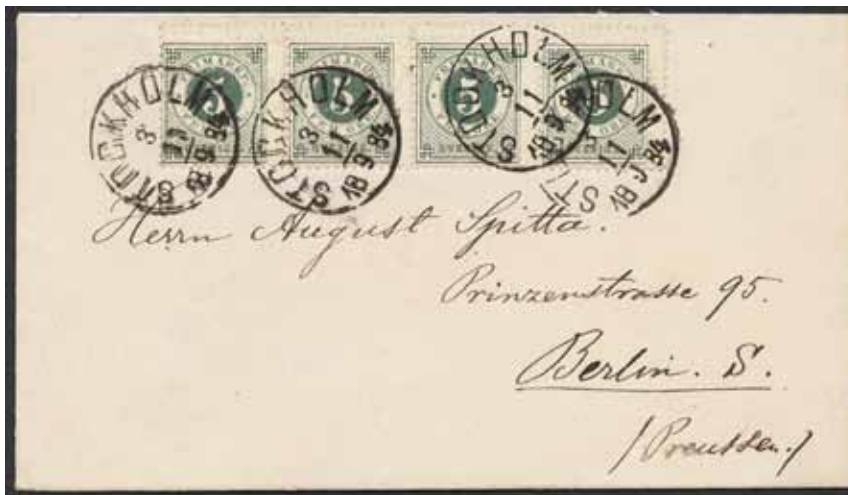 5 5 5 5
STOCKHOLM
3
11
18 9 84
STOCKHOLM
3
11
18 9 84
STOCKHOLM
3
11
18 9
HOLM
11
18 9 84
Herrn August Spitta.
Prinzenstrasse 95.
Berlin. S.
(Preussen.)